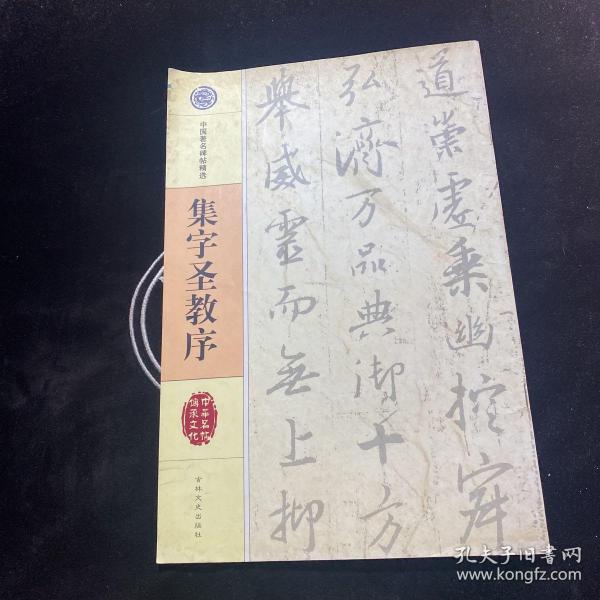 中国著名碑帖精选
集字圣教序
中华名帖
传承文化
吉林文史出版社
道崇虚乘幽控寂
弘济万品典御十方
举威灵而无上抑
孔夫子旧书网
www.kongfz.com